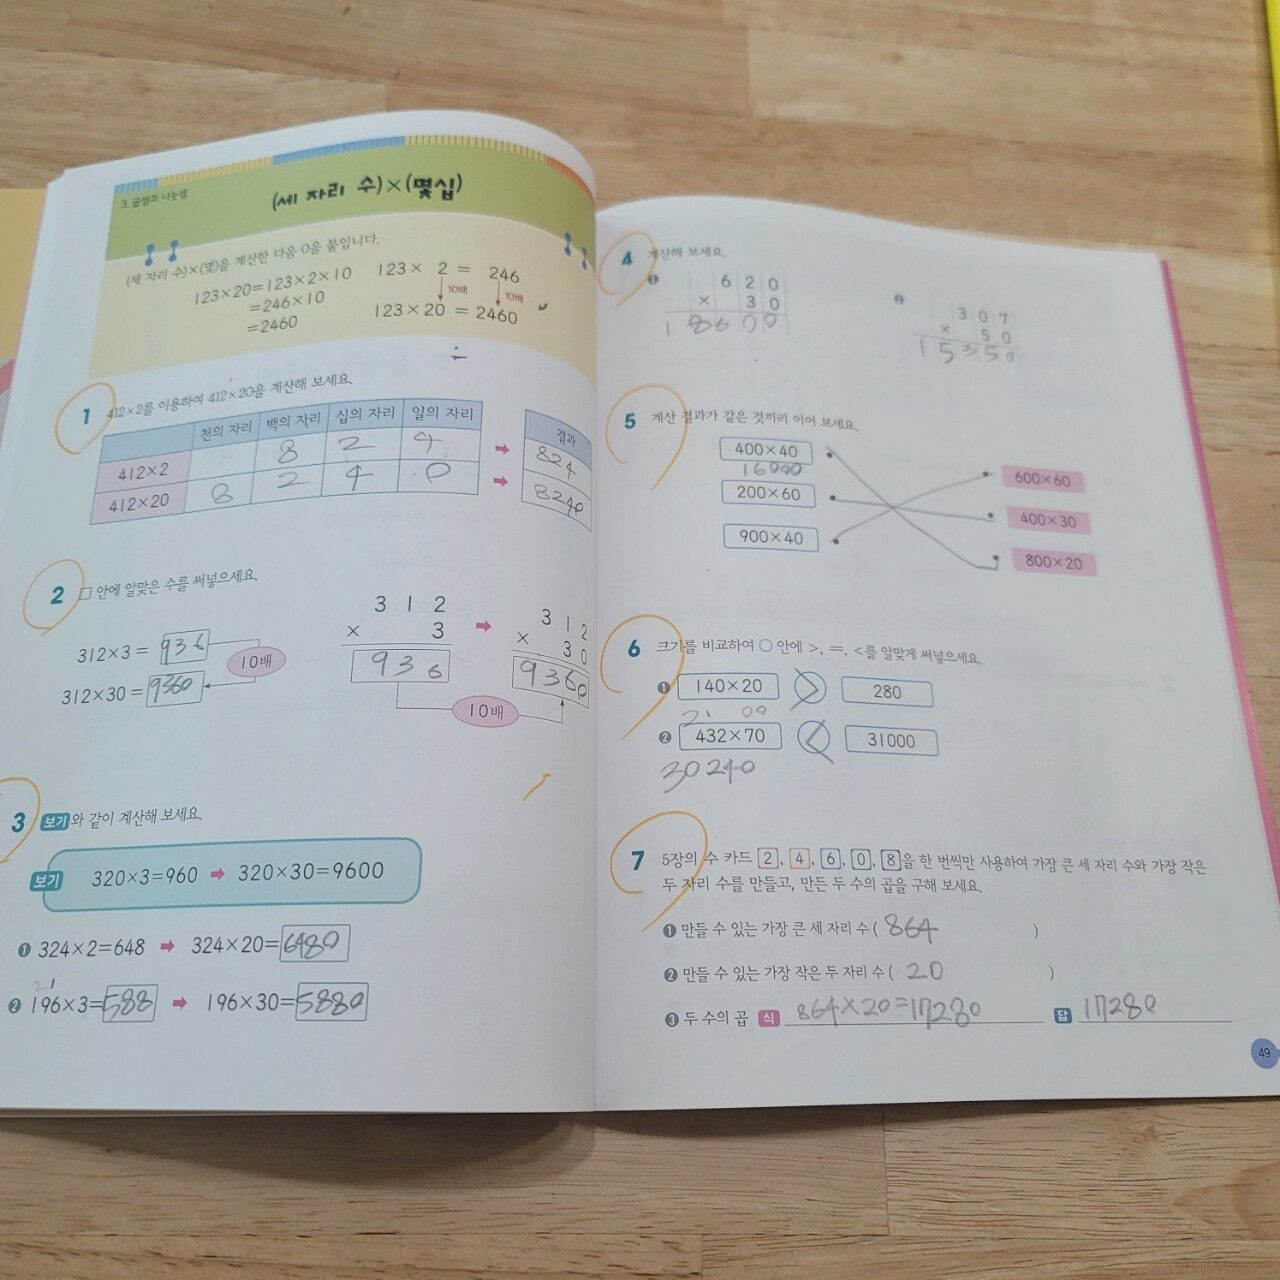 3. 곱셈과 나눗셈
(세 자리 수)×(몇십)
(세 자리 수)×(몇)을 계산한 다음 0을 붙입니다.
123×20=123×2×10
=246×10
=2460
123× 2 = 246
10배 10배
123×20 = 2460
1 412×2를 이용하여 412×20을 계산해 보세요.
천의 자리 백의 자리 십의 자리 일의 자리 결과
412×2 8 2 4 ➡ 824
412×20 8 2 4 0 ➡ 8240
2 □ 안에 알맞은 수를 써넣으세요.
312×3= 936
10배
312×30= 9360
3 1 2
× 3
936
➡
3 1 2
× 3 0
9360
10배
3 보기와 같이 계산해 보세요.
보기 320×3=960 ➡ 320×30=9600
❶ 324×2=648 ➡ 324×20=6480
21
❷ 196×3=588 ➡ 196×30=5880
4 계산해 보세요.
❶ 6 2 0
× 3 0
1 8 6 0 0
❷ 3 0 7
× 5 0
1 5 3 5 0
5 계산 결과가 같은 것끼리 이어 보세요.
400×40
16000
200×60
900×40
600×60
400×30
800×20
6 크기를 비교하여 ○ 안에 >, =, <를 알맞게 써넣으세요.
❶ 140×20 > 280
❷ 432×70 < 31000
30240
7 5장의 수 카드 2, 4, 6, 0, 8을 한 번씩만 사용하여 가장 큰 세 자리 수와 가장 작은
두 자리 수를 만들고, 만든 두 수의 곱을 구해 보세요.
❶ 만들 수 있는 가장 큰 세 자리 수 ( 864 )
❷ 만들 수 있는 가장 작은 두 자리 수 ( 20 )
❸ 두 수의 곱 식 864×20=17280 답 17280
49